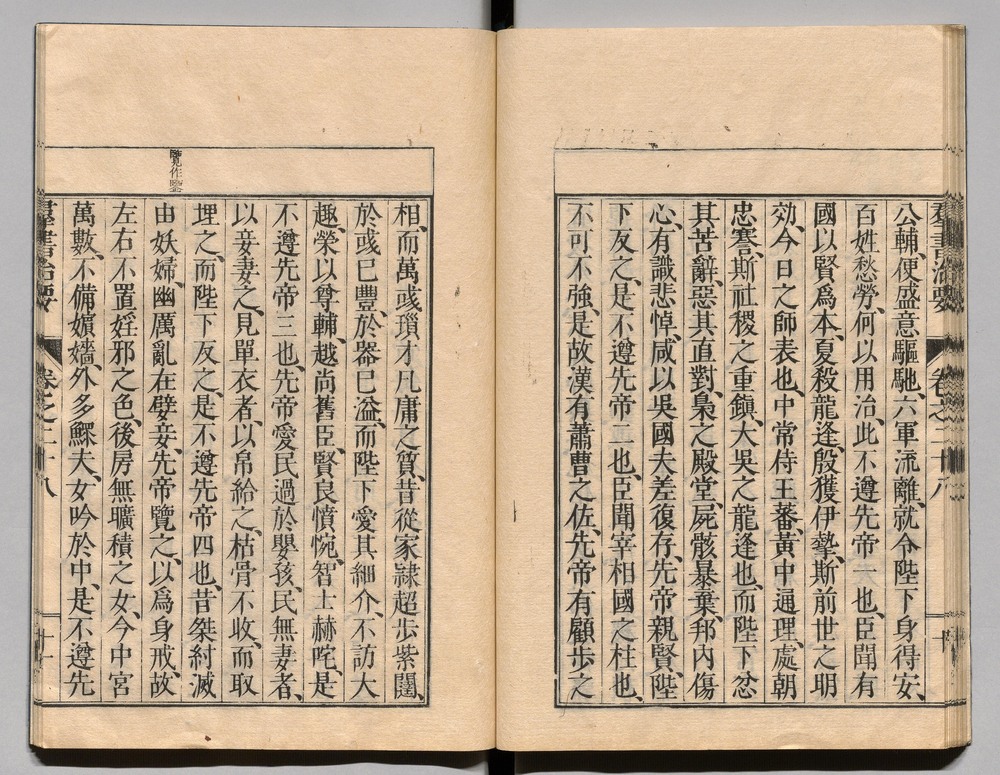 羣書治要 卷之二十八 十
公輔、便盛意驅馳、六軍流離、就令陛下身得安、
百姓愁勞、何以用治、此不遵先帝一也、臣聞有
國以賢爲本、夏殺龍逢、殷獲伊摯、斯前世之明
効、今日之師表也、中常侍王蕃、黃中通理、處朝
忠謇、斯社稷之重鎮、大吳之龍逢也、而陛下忿
其苦辭、惡其直對、梟之殿堂、屍骸暴棄、邦內傷
心、有識悲悼、咸以吳國夫差復存、先帝親賢、陛
下反之、是不遵先帝二也、臣聞宰相國之柱也、
不可不強、是故漢有蕭曹之佐、先帝有顧步之
相、而萬彧瑣才凡庸之質、昔從家隸超步紫闥、
於彧已豐、於器已溢、而陛下愛其細介、不訪大
趣、榮以尊輔、越尚舊臣、賢良憤惋、智士赫咤、是
不遵先帝三也、先帝愛民過於嬰孩、民無妻者、
以妾妻之、見單衣者、以帛給之、枯骨不收、而取
埋之、而陛下反之、是不遵先帝四也、昔桀紂滅
覽作鑒
由妖婦、幽厲亂在嬖妾、先帝覽之、以爲身戒、故
左右不置婬邪之色、後房無曠積之女、今中宮
萬數、不備嬪嬙、外多鰥夫、女吟於中、是不遵先
羣書治要 卷之二十八 十一